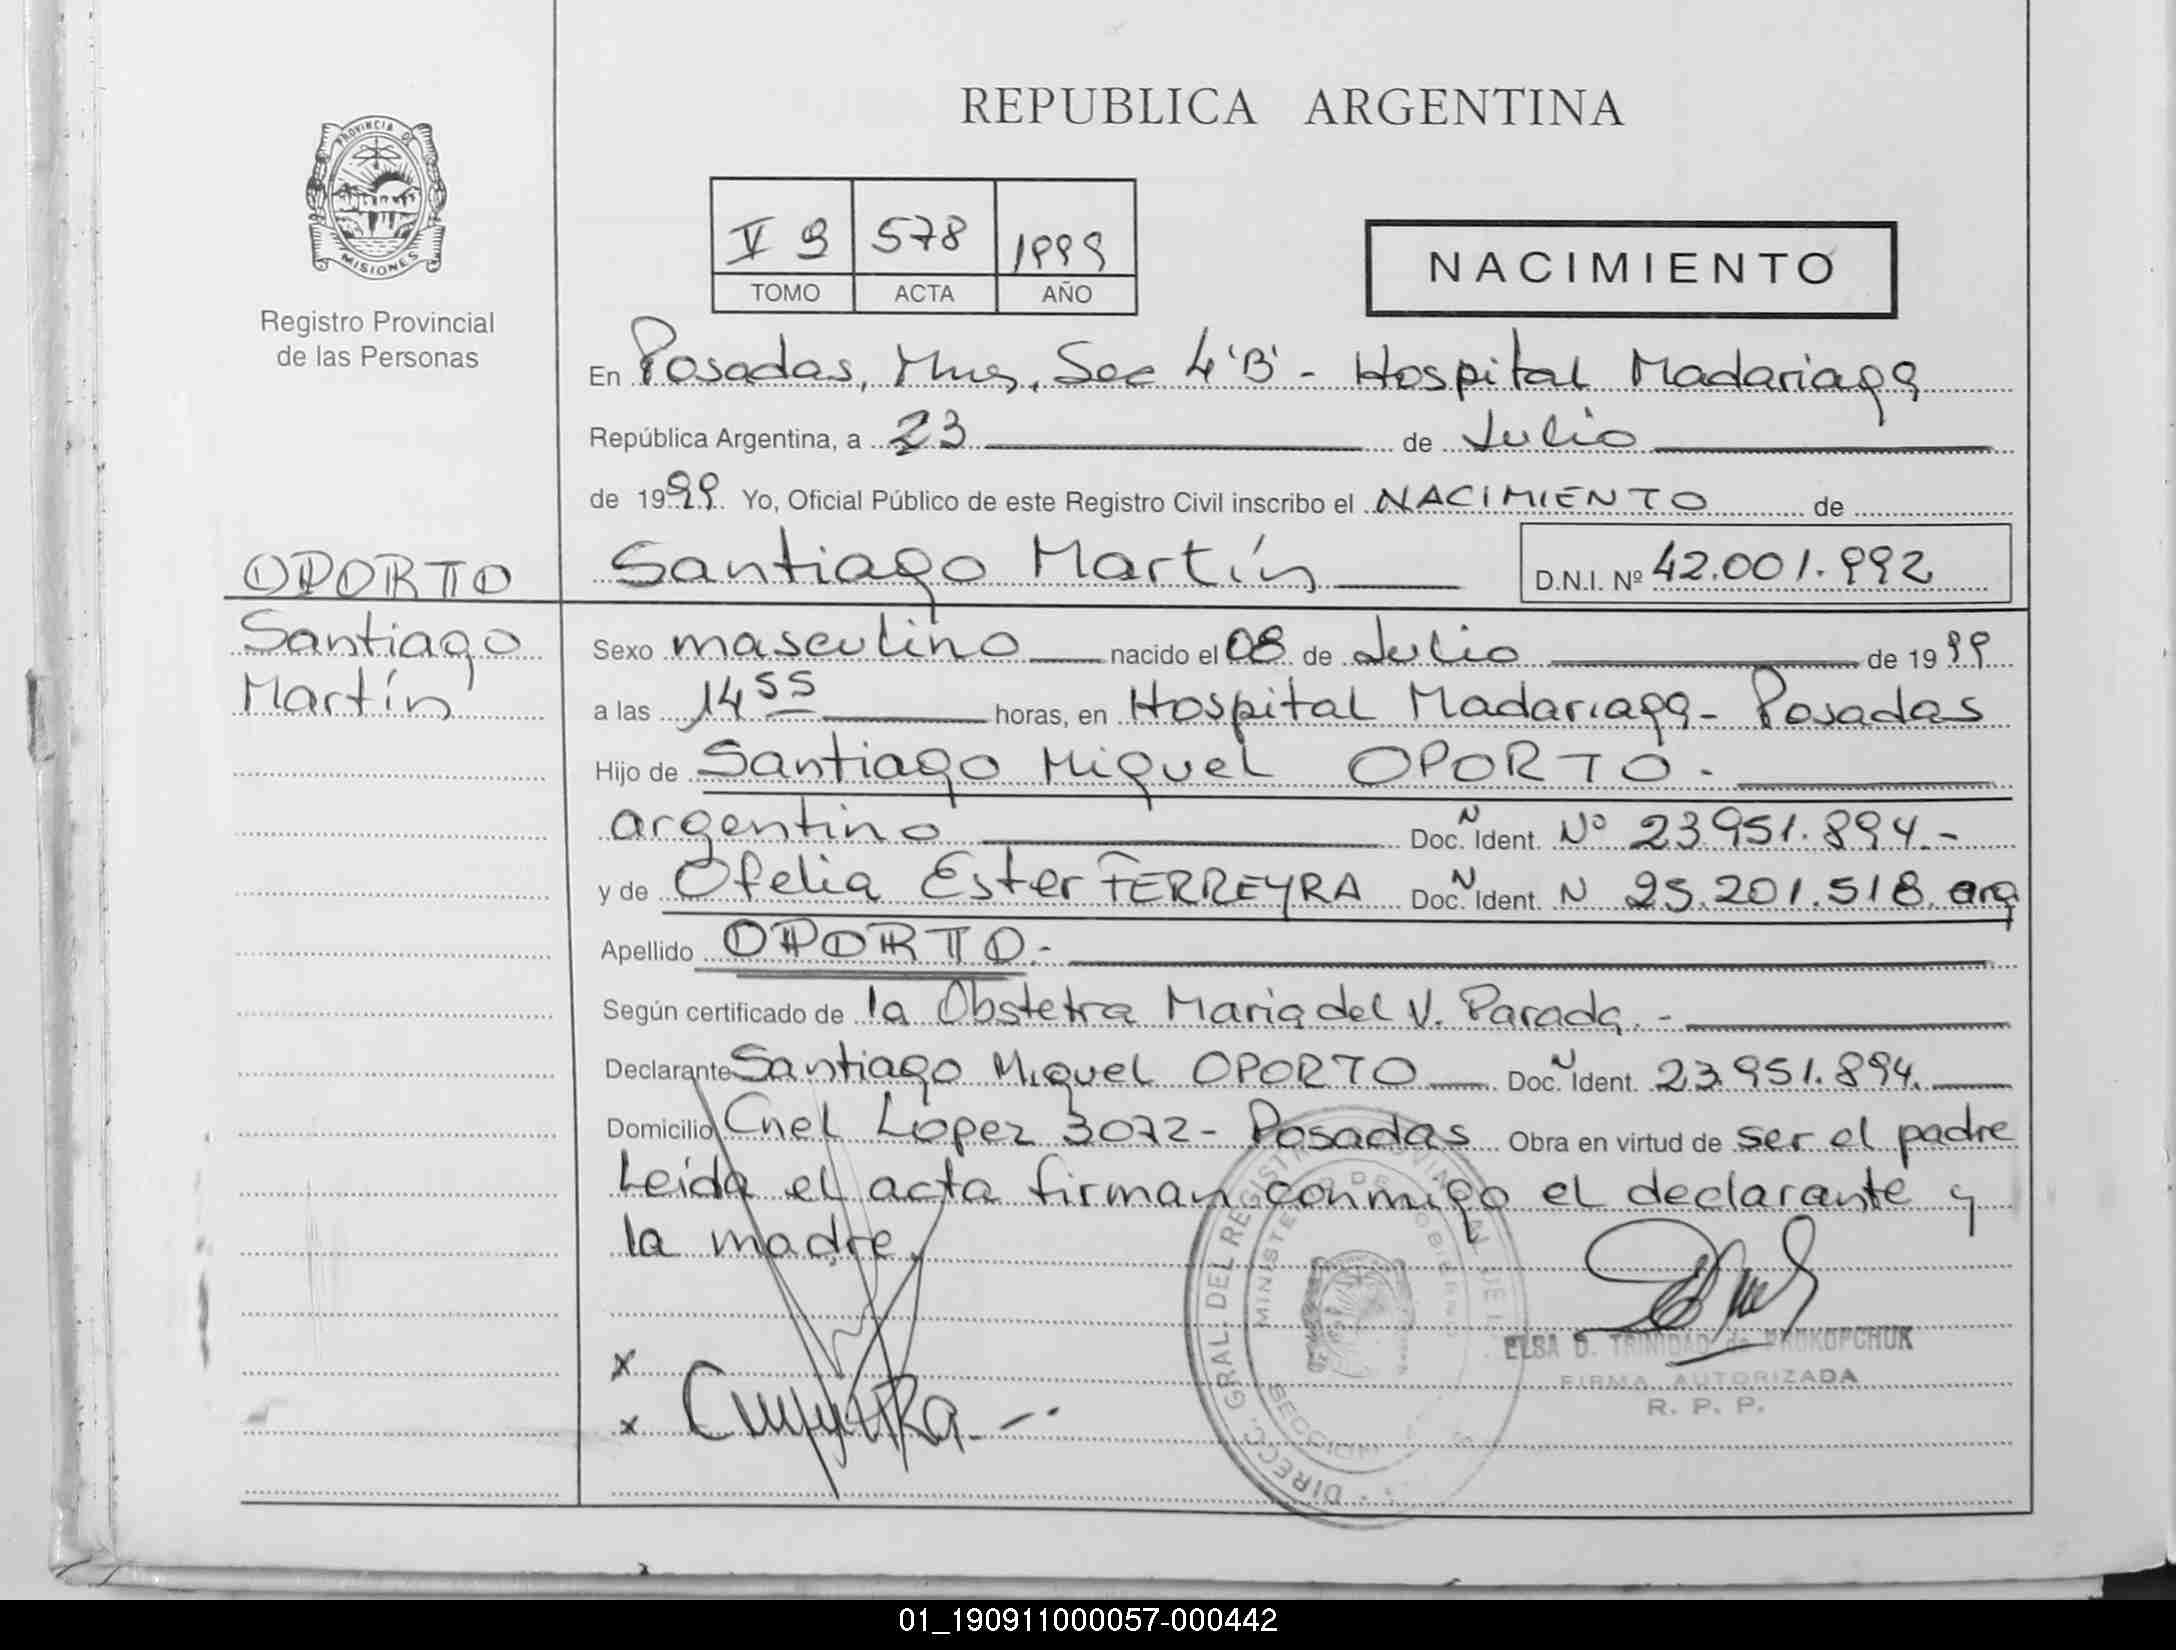 PROVINCIA DE
MISIONES
Registro Provincial
de las Personas
REPUBLICA ARGENTINA
V 9 578 1999
TOMO ACTA AÑO
NACIMIENTO
En Posadas, Mnes, Sec 4'B' - Hospital Madariaga
República Argentina, a 23 de Julio
de 1999 Yo, Oficial Público de este Registro Civil inscribo el NACIMIENTO de
OPORTO
Santiago Martín D.N.I. Nº 42.001.992
Santiago
Martín
Sexo masculino nacido el 08 de Julio de 1999
a las 14 55 horas, en Hospital Madariaga - Posadas
Hijo de Santiago Miguel OPORTO.-
argentino Doc. N Ident. Nº 23951.894.-
y de Ofelia Ester FERREYRA Doc. N Ident. N 25.201.518 arg
Apellido OPORTO.-
Según certificado de la Obstetra Maria del V. Parada.-
Declarante Santiago Miguel OPORTO Doc. N Ident. 23.951.894.
Domicilio Cnel Lopez 3072 - Posadas Obra en virtud de ser el padre
Leída el acta firman conmigo el declarante y
la madre.
DIRECC. GRAL. DEL REGISTRO PROVINCIAL DE L
MINISTERIO DE GOBIERNO
SECCION
ELSA D. TRINIDAD de PROKOPCHUK
FIRMA AUTORIZADA
R. P. P.
x
x
01_190911000057-000442